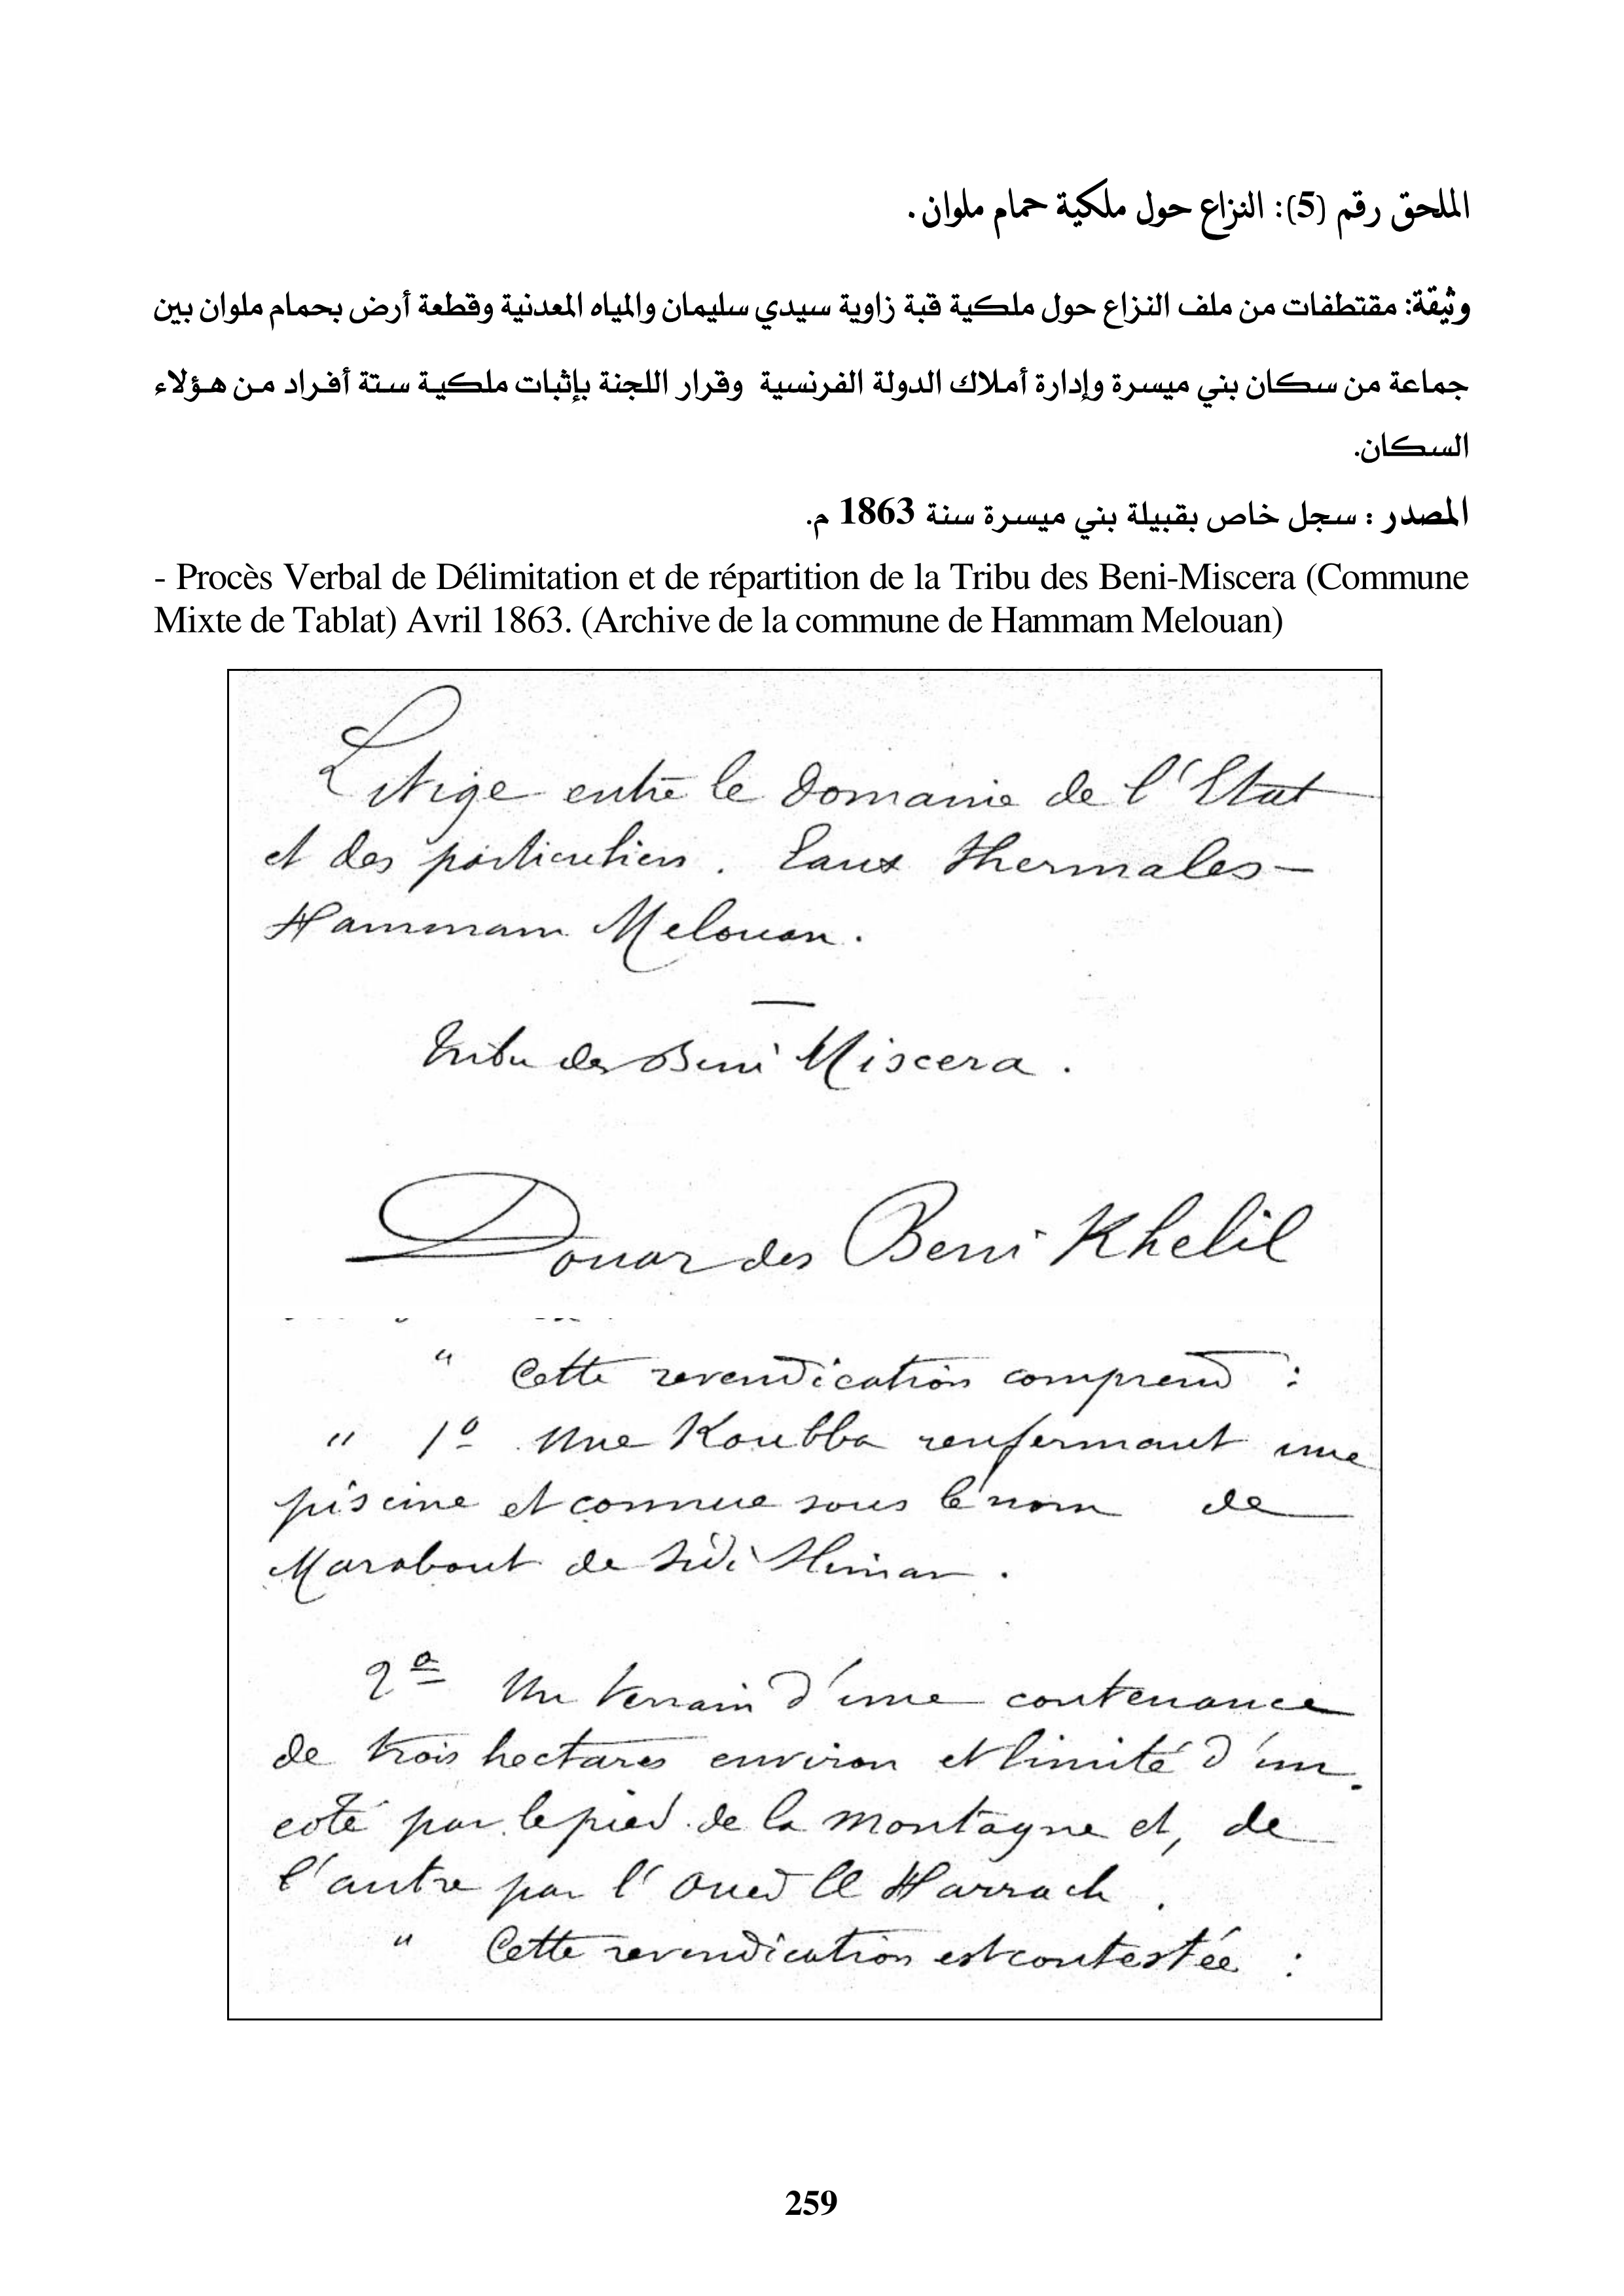 الملحق رقم (5): النزاع حول ملكية حمام ملوان.
وثيقة: مقتطفات من ملف النزاع حول ملكية قبة زاوية سيدي سليمان والمياه المعدنية وقطعة أرض بحمام ملوان بين
جماعة من سكان بني ميسرة وإدارة أملاك الدولة الفرنسية وقرار اللجنة بإثبات ملكية ستة أفراد من هؤلاء
السكان.
المصدر : سجل خاص بقبيلة بني ميسرة سنة 1863 م.
- Procès Verbal de Délimitation et de répartition de la Tribu des Beni-Miscera (Commune
Mixte de Tablat) Avril 1863. (Archive de la commune de Hammam Melouan)
Litige entre le Domaine de l'Etat
et des particuliers. Eaux thermales-
Hammam Melouan.
Tribu des Beni Miscera.
Douar des Beni Khelil
" Cette revendication comprend :
" 1º Une Koubba renfermant une
piscine et connue sous le nom de
Marabout de Sidi Sliman.
2º Un terrain d'une contenance
de trois hectares environ et limité d'un
coté par le pied de la montagne et, de
l'autre par l'Oued El Harrach.
" Cette revendication est contestée :
259